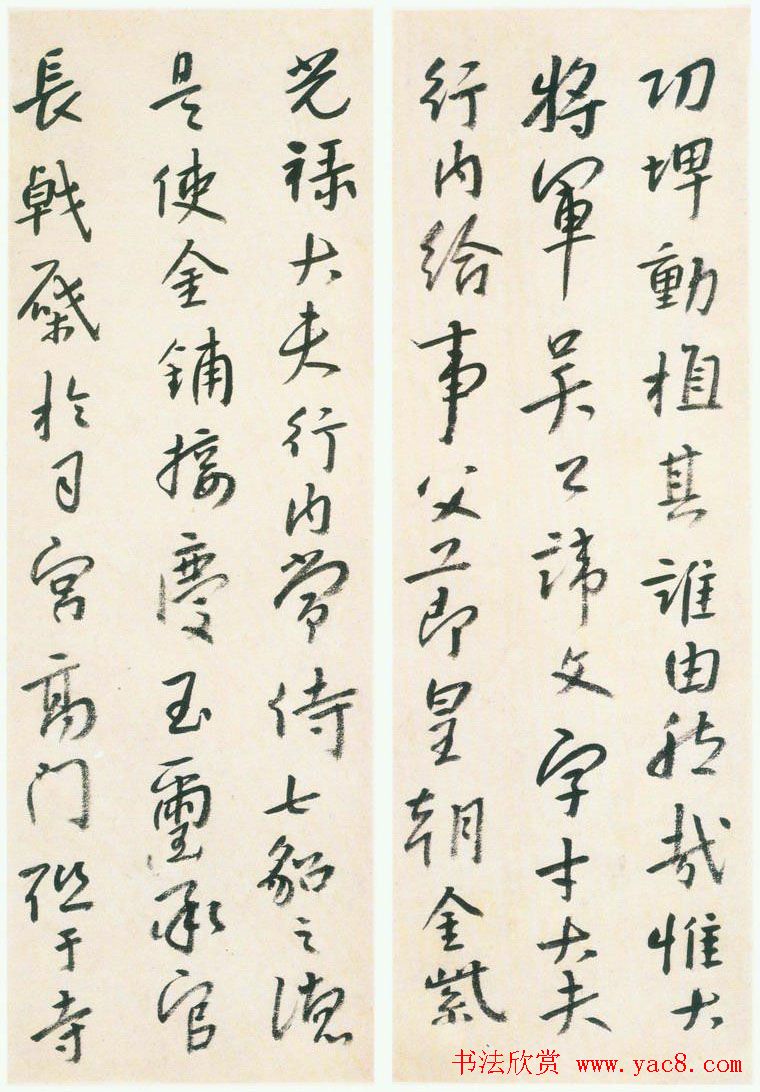 功埤動植其誰由然哉惟大
將軍吳公諱文字才大夫
行內給事父節皇朝金紫
光祿大夫行內常侍七貂之德
是使金鋪接慶玉璽承官
長戟於司宮高門于寺
书法欣赏 www.yac8.com